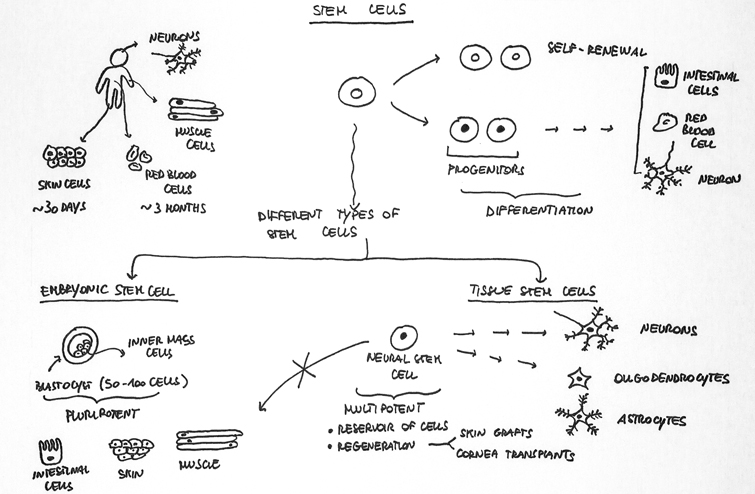 STEM CELLS
NEURONS
MUSCLE
CELLS
SKIN CELLS
~30 DAYS
RED BLOOD
CELLS
~3 MONTHS
SELF-RENEWAL
PROGENITORS
DIFFERENTIATION
INTESTINAL
CELLS
RED
BLOOD
CELL
NEURON
DIFFERENT TYPES OF
STEM CELLS
EMBRYONIC STEM CELL
INNER MASS
CELLS
BLASTOCYST (50-100 CELLS)
PLURIPOTENT
INTESTINAL
CELLS
SKIN
MUSCLE
TISSUE STEM CELLS
NEURAL STEM
CELL
MULTIPOTENT
• RESERVOIR OF CELLS
• REGENERATION
SKIN GRAFTS
CORNEA TRANSPLANTS
NEURONS
OLIGODENDROCYTES
ASTROCYTES